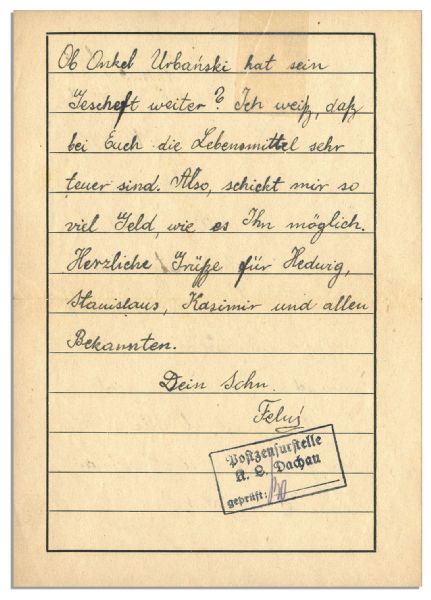 Ob Onkel Urbański hat sein
Gescheft weiter? Ich weiß, daß
bei Euch die Lebensmittel sehr
teuer sind. Also, schickt mir so
viel Geld, wie es Ihn möglich.
Herzliche Grüße für Hedwig,
Stanislaus, Kasimir und allen
Bekannten.
Dein Sohn.
Feluś
Postzensurstelle
K. L. Dachau
geprüft: